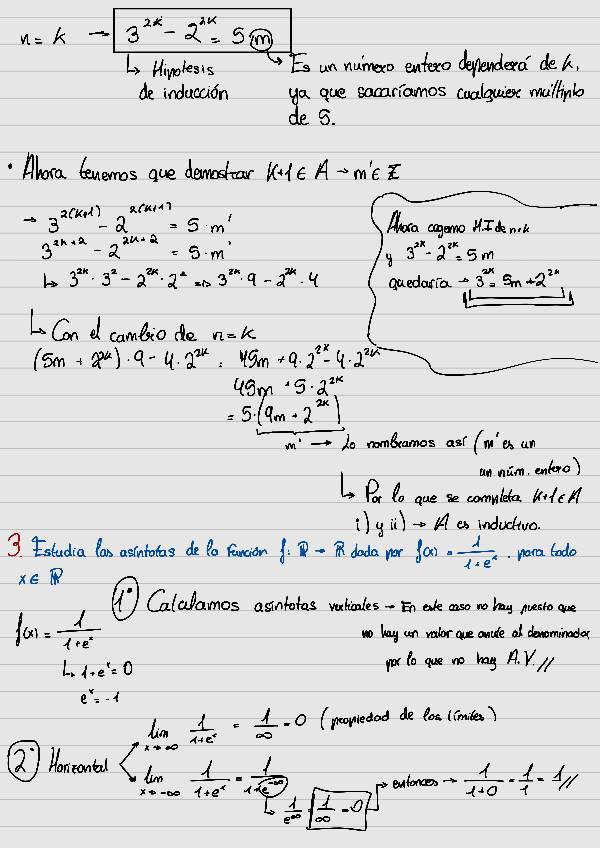 n = k → 3^{2k} - 2^{2k} = 5m
↳ Hipotesis de inducción
→ Es un número entero dependerá de k,
ya que sacaríamos cualquier múltiplo
de 5.
• Ahora tenemos que demostrar k+1 ∈ A → m' ∈ Z
→ 3^{2(k+1)} - 2^{2(k+1)} = 5·m'
3^{2k+2} - 2^{2k+2} = 5·m'
↳ 3^{2k} · 3^2 - 2^{2k} · 2^2 => 3^{2k} · 9 - 2^{2k} · 4
Ahora cogemo H.I de n=k
y 3^{2k} - 2^{2k} = 5m
quedaría → 3^{2k} = 5m + 2^{2k}
↳ Con el cambio de n=k
(5m + 2^{2k}) · 9 - 4 · 2^{2k} = 45m + 9 · 2^{2k} - 4 · 2^{2k}
45m + 5 · 2^{2k}
= 5 · (9m + 2^{2k})
m' → Lo nombramos así (m' es un
un núm. entero)
↳ Por lo que se completa k+1 ∈ A
i) y ii) → A es inductivo.
3. Estudia las asíntotas de la función f: R → R dada por f(x) = 1/(1+e^x). para todo
x ∈ R
1º Calculamos asíntotas verticales → En este caso no hay puesto que
f(x) = 1/(1+e^x)
no hay un valor que anule al denominador
↳ 1+e^x = 0
por lo que no hay A.V. //
e^x = -1
2º Horizontal
lim x→∞ 1/(1+e^x) = 1/∞ = 0 (propiedad de los límites)
lim x→-∞ 1/(1+e^x) = 1/(1+e^{-∞})
↳ 1/e^∞ = 1/∞ = 0 → entonces → 1/(1+0) = 1/1 = 1 //